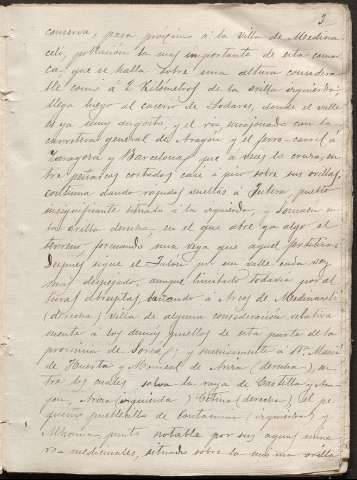 3
conserva, pasa próximo á la villa de Medina
celi, población la mas importante de esta comar
ca, que se halla sobre una altura considera
ble como á 2 Kilómetros de la orilla izquierda;
llega luego al caserío de Lodares, donde el valle
es ya muy angosto, y el río encajonado con la
carretera general de Aragón y el ferro-carril á
Zaragoza y Barcelona, que á veces le cruza, en
tre peñascos cortados casi á pico sobre sus orillas,
continua dando rapidas vueltas á Jubera, pueblo
insignificante situado á la izquierda, y Somaen en
la orilla derecha, en el que abre ya algo el
terreno, formando una vega que aquel fertiliza.
Despues sigue el Jalón por un valle cada vez
mas despejado, aunque limitado todavia por al
turas abruptas, bañando á Arcos de Medinaceli
(derecha) villa de alguna consideración relativa
mente á los demas pueblos de esta parte de la
provincia de Soria, y sucesivamente á Sta. María
de Huerta y Monreal de Ariza (derecha), en
tre los cuales salva la raya de Castilla y Ara
gon, Ariza (izquierda) Cetina (derecha), el pe
queño pueblecillo de Contamina (izquierda) y
Alhama, punto notable por sus aguas minero
medicinales, situado sobre la misma orilla